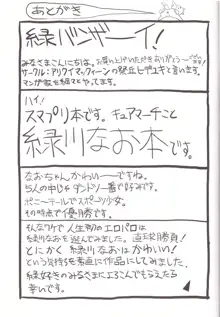 あとがき
緑バンザーイ!
みなさまこんにちは。お買い上げいただきありがとう
サークル:アリクイマックィーンの
マンガ家を細々とやってます。
ハイ!
スマプリ本です。キュアマーチこと
緑川なお本です。
なおちゃんかわいーですね。
5人の中じゃダントツ一番好みです。
ポニーテールでスポーツ少女。
その時点で優勝です。
そんなワケで人生初のエロパロは
緑川なおを選んでみました。直球勝負!
とにかく緑川なおはかわいい!
という気持ちを素直に作品にしてみました。
緑好きのみなさまによろこんでもらえたら
幸いです。